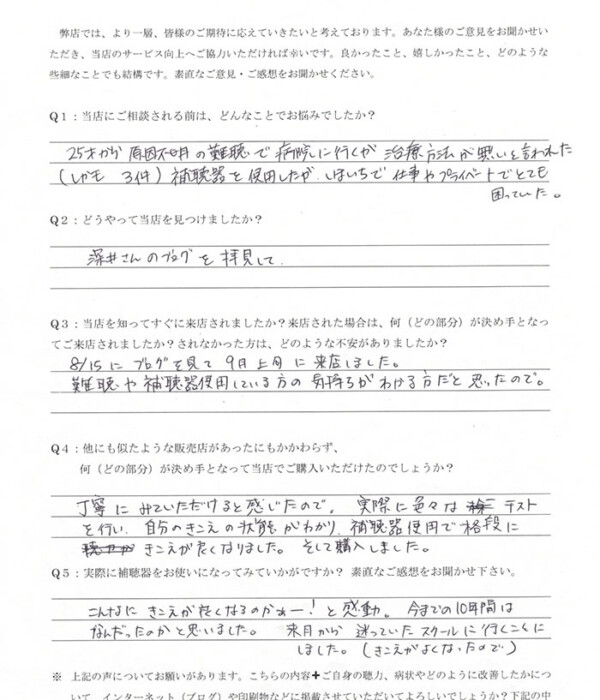 弊店では、より一層、皆様のご期待に応えていきたいと考えております。あなた様のご意見をお聞かせい
ただき、当店のサービス向上へご協力いただければ幸いです。良かったこと、嬉しかったこと、どのような
些細なことでも結構です。素直なご意見・ご感想をお聞かせください。
Q1：当店にご相談される前は、どんなことでお悩みでしたか？
25才から原因不明の難聴で病院に行くが治療方法が無いと言われた
(しかも3件) 補聴器を使用したが、いまいちで仕事やプライベートでとても
困っていた。
Q2：どうやって当店を見つけましたか？
深井さんのブログを拝見して.
Q3：当店を知ってすぐに来店されましたか？来店された場合は、何（どの部分）が決め手となっ
てご来店されましたか？されなかった方は、どのような不安がありましたか？
8/15にブログを見て9月上旬に来店しました。
難聴や補聴器使用している方の気持ちがわかる方だと思ったので。
Q4：他にも似たような販売店があったにもかかわらず、
何（どの部分）が決め手となって当店でご購入いただけたのでしょうか？
丁寧にみていただけると感じたので。実際に色々なテスト
を行い、自分のきこえの状態がわかり、補聴器使用で格段に
きこえが良くなりました。そして購入しました。
Q5：実際に補聴器をお使いになってみていかがですか？ 素直なご感想をお聞かせ下さい。
こんなにきこえが良くなるのかぁー！と感動。今までの10年間は
なんだったのかと思いました。来月から迷っていたスクールに行くことに
しました。(きこえがよくなったので)
※ 上記の声についてお願いがあります。こちらの内容＋ご自身の聴力、病状やどのように改善したかにつ
いて、インターネット（ブログ）や印刷物などに掲載させていただいてよろしいでしょうか？下記の中